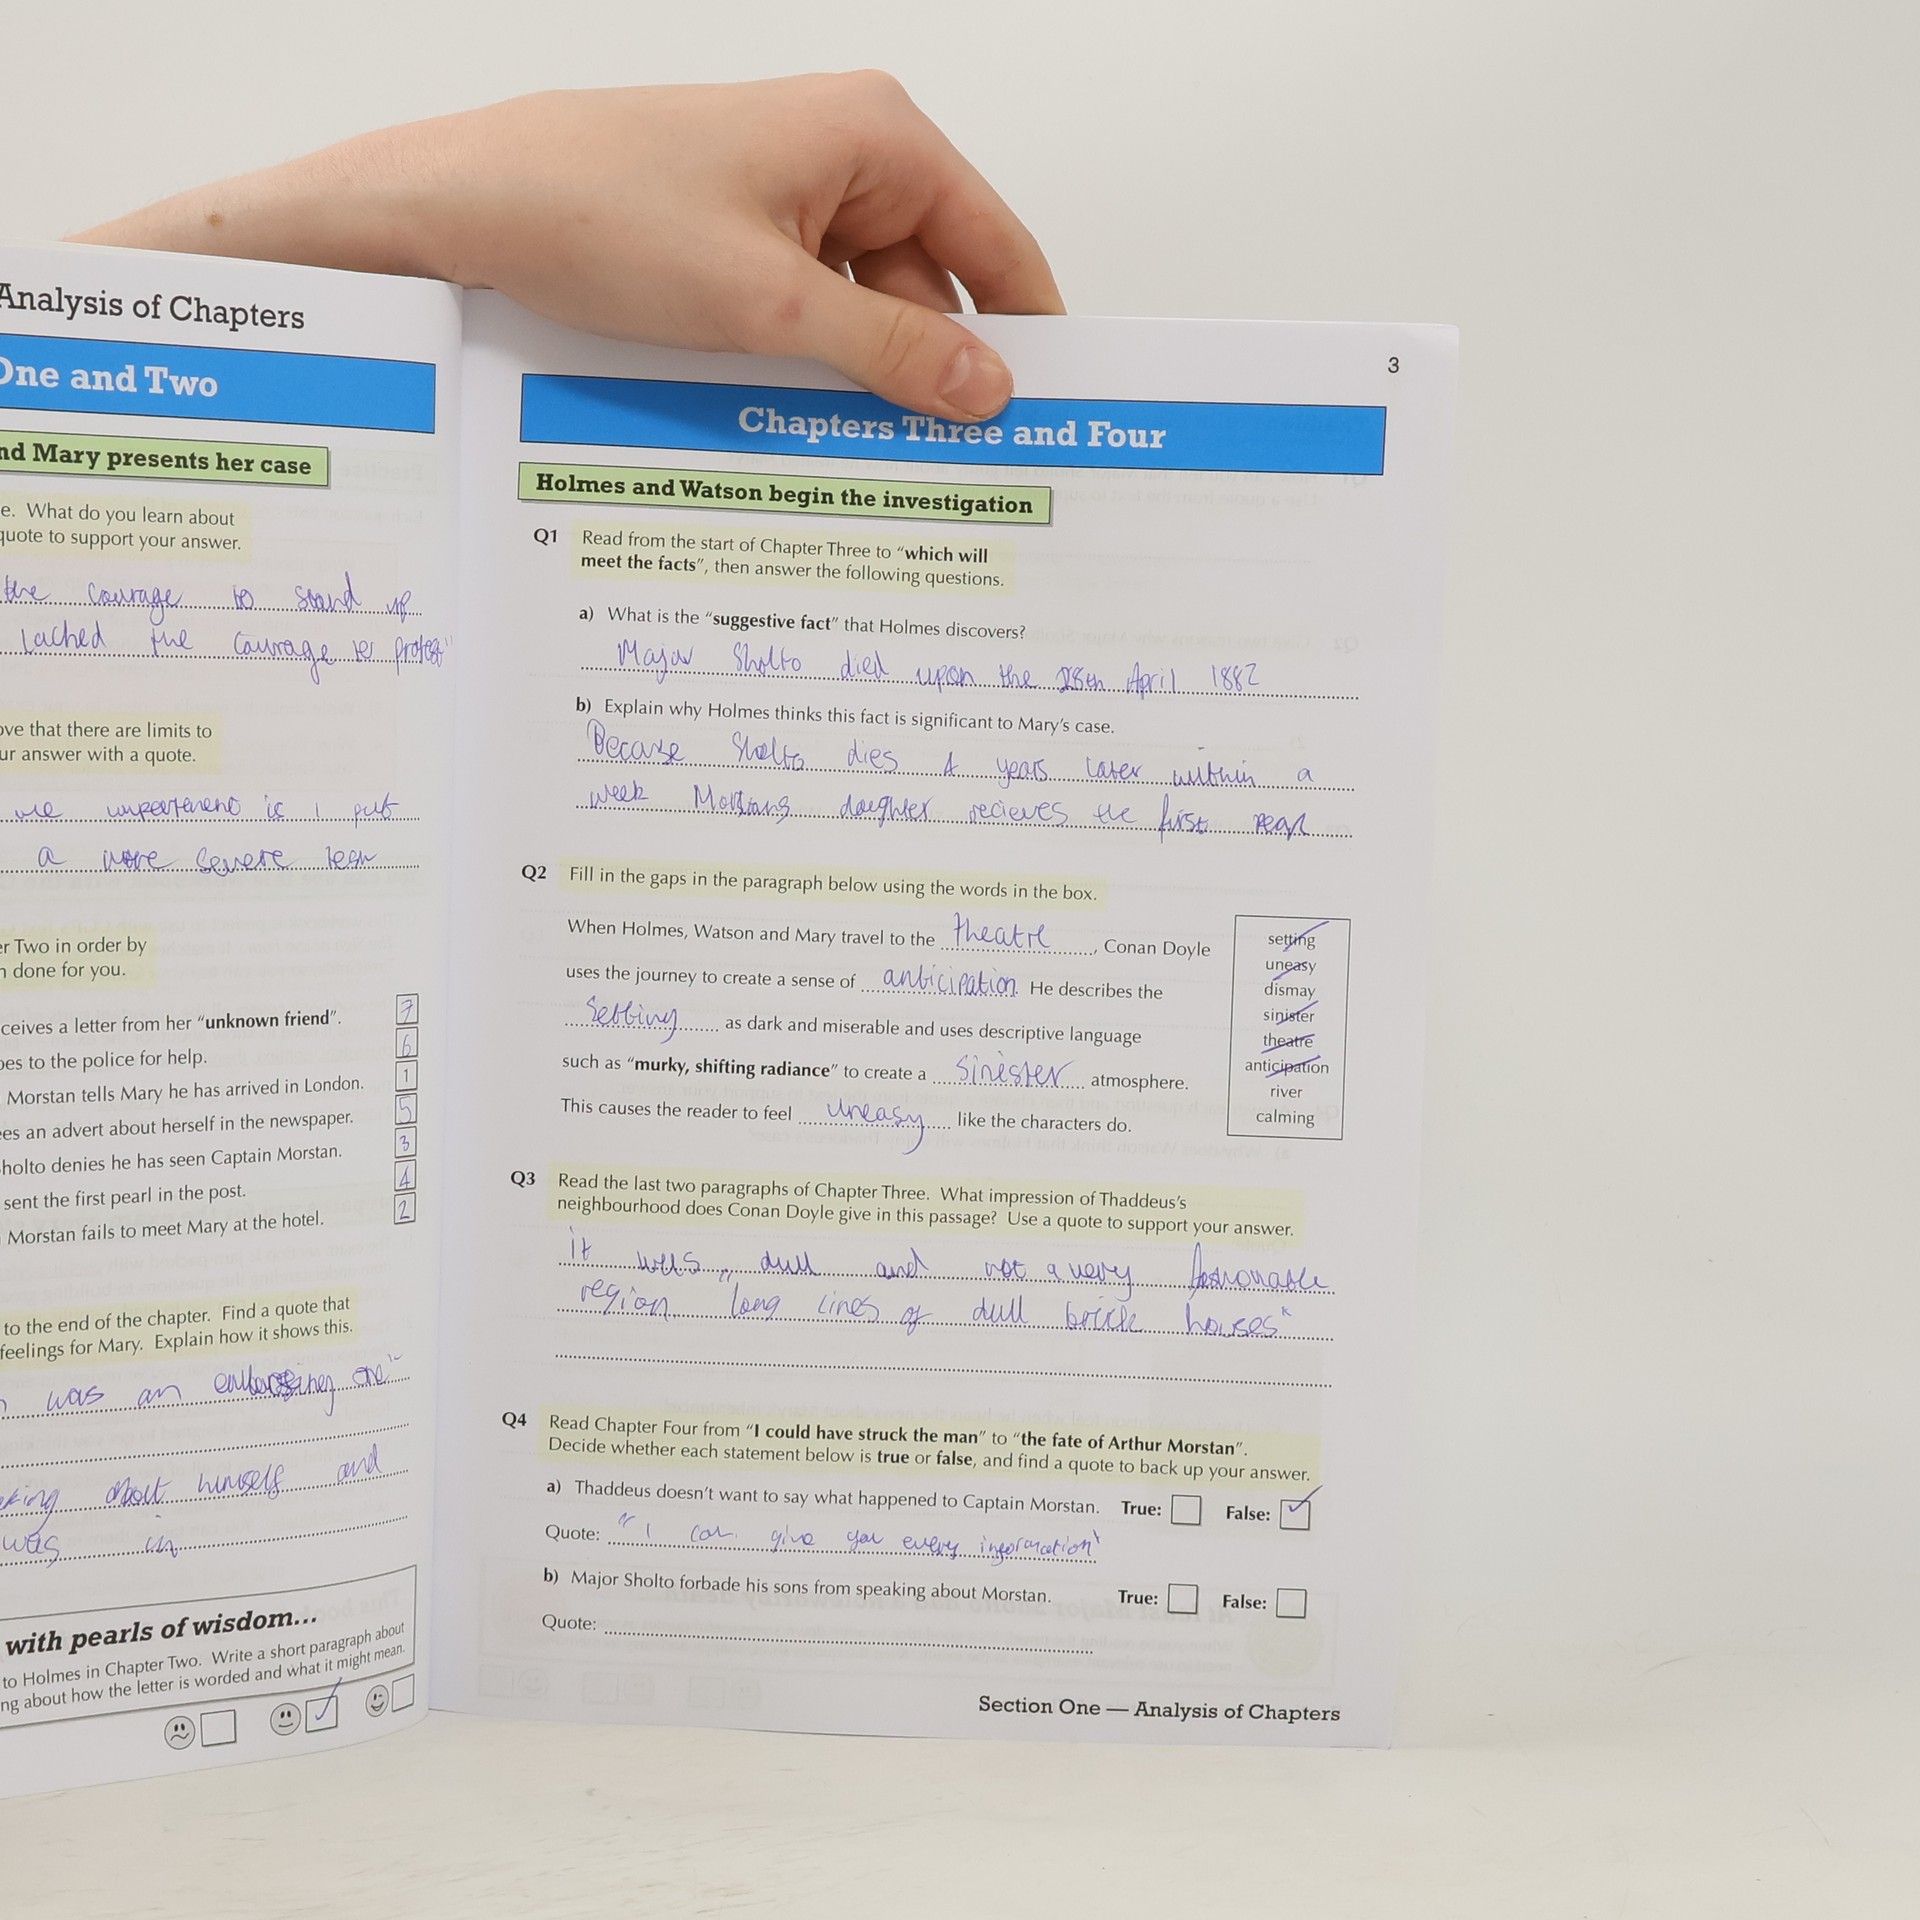 Analysis of Chapters
One and Two
nd Mary presents her case
e. What do you learn about
quote to support your answer.
the courage to stand up
lached the courage to protest"
ove that there are limits to
ur answer with a quote.
me impertenent is I put
a more severe test
er Two in order by
n done for you.
ceives a letter from her "unknown friend". 7
oes to the police for help. 6
Morstan tells Mary he has arrived in London. 1
ees an advert about herself in the newspaper. 5
Sholto denies he has seen Captain Morstan. 3
sent the first pearl in the post. 4
Morstan fails to meet Mary at the hotel. 2
to the end of the chapter. Find a quote that
feelings for Mary. Explain how it shows this.
was an one"
king about himself and
was in
with pearls of wisdom...
to Holmes in Chapter Two. Write a short paragraph about
ng about how the letter is worded and what it might mean.
3
Chapters Three and Four
Holmes and Watson begin the investigation
Q1 Read from the start of Chapter Three to "which will
meet the facts", then answer the following questions.
a) What is the "suggestive fact" that Holmes discovers?
Major Sholto died upon the 28th April 1882
b) Explain why Holmes thinks this fact is significant to Mary's case.
Because Sholto dies 4 years later within a
week Morstans daughter recieves the first pearl
Q2 Fill in the gaps in the paragraph below using the words in the box.
When Holmes, Watson and Mary travel to the theatre, Conan Doyle
uses the journey to create a sense of anticipation. He describes the
Setting as dark and miserable and uses descriptive language
such as "murky, shifting radiance" to create a sinister atmosphere.
This causes the reader to feel uneasy like the characters do.
setting
uneasy
dismay
sinister
theatre
anticipation
river
calming
Q3 Read the last two paragraphs of Chapter Three. What impression of Thaddeus's
neighbourhood does Conan Doyle give in this passage? Use a quote to support your answer.
it was dull and not a very fashionable
region. "long lines of dull brick houses"
Q4 Read Chapter Four from "I could have struck the man" to "the fate of Arthur Morstan".
Decide whether each statement below is true or false, and find a quote to back up your answer.
a) Thaddeus doesn't want to say what happened to Captain Morstan. True: False: ✓
Quote: "I can give you every information"
b) Major Sholto forbade his sons from speaking about Morstan. True: False:
Quote:
Section One — Analysis of Chapters